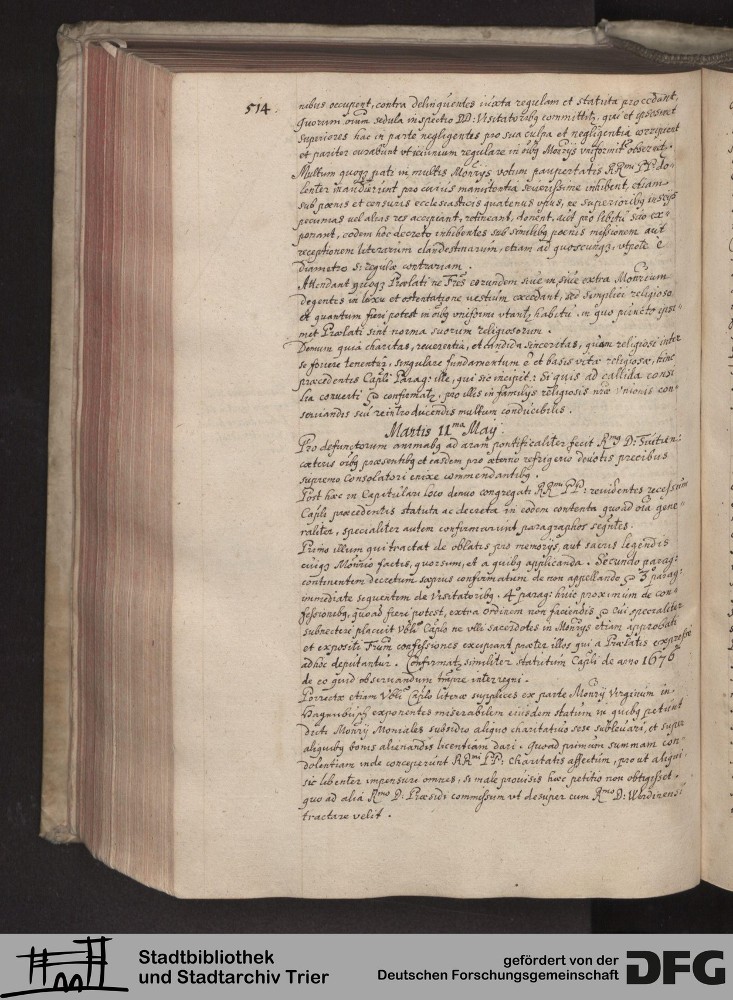 514.
nibus occupent, contra delinquentes iuxta regulam et statuta procedant,
quorum oīum sedula inspectio DD: Visitatoribq committitr, qui et ipsosmet
superiores hac in parte negligentes pro sua culpa et negligentia corripient
et pariter curabunt vt ieiunium regulare in oībq Monrijs vniformitr observetr.
Multum quoqz pati in multis Monrijs votum paupertatis RRmi PP: do-
lenter inaudiunt pro cuius manutentia severissime inhibent, etiam
sub poenis et censuris ecclesiasticis quatenus opus, ne superioribq insciis
pecunias vel alias res accipiant, retineant, donent, aut pro libitu suo ex-
ponant, eodem hoc decreto inhibentes sub similibq poenis missionem aut
receptionem literarum clandestinarum, etiam ad quoscunqz, vtpote è
diametro S: regulae contrariam.
Attendant quoqz Praelati ne Frēs eorundem siue in, siue extra Monrium
degentes in luxu et ostentatione vestium excedant, sed simplici religioso
et quantum fieri potest in oībq vniformi vtantr habitu, in quo pieneto ipsi-
met Praelati sint norma suorum religiosorum.
Demum quia charitas, reverentia, et candida sinceritas, quam religiosi inter
se fovere tenentur, singulare fundamentum è et basis vitae religiosae, hinc
praecedentis Capli Parag: ille, qui sic incipit: Si quis ad callida consi
lia converti confirmatr, pro illis in familijs religiosis nrae Vnionis con-
servandis seu reintroducendis multum conducibilis.
Martis 11ma May.
Pro defunctorum animabq ad aram pontificaliter fecit Rmo D: Tuitien:
caeteris oībq praesentibq et easdem pro aeterno refrigerio devotis precibus
supremo Consolatori enixe commendantibq.
Post haec in Capitulari loco denuo congregati RRmi PP: revidentes recessum
Capli praecedentis statuta ac decreta in eodem contenta quoad oīa gene-
raliter, specialiter autem confirmarunt paragraphos seqntes.
Primo illum qui tractat de oblatis pro memorijs, aut sacris legendis
cuiqz Monrio factis, quorsum, et a quibq applicanda. Secundo parag:
continentem decretum saepius confirmatum de non appellando 3 parag:
immediate sequentem de Visitatoribq. 4o parag: huic proximum de con-
fessionibq, quoad fieri potest, extra ordinem non faciendis cui specialiter
subnectere placuit Vbli Caplo ne vlli sacerdotes in Monrijs etiam approbati
et expositi Frum confessiones excipiant praeter illos qui a Praelatis expresse
adhoc deputantur. Confirmatr similiter statutum Capli de anno 1676
de eo quid observandum tmpre interregni.
Porrectae etiam Vbli Caplo literae supplices ex parte Monrij Virginum in
Hagenbusch exponentes miserabilem eiusdem statum in quibq petunt
dicti Monrij Moniales subsidio aliquo charitativo sese sublevari, et super
aliquibq bonis alienandis licentiam dari. Quoad primum summam con-
dolentiam inde conceperunt RRmi PP: Charitatis affectum, pro ut aliqui
sic libenter impensuri omnes, si male provisis haec petitio non obtigisset,
quo ad alia Rmo D: Praesidi commissum vt desuper cum Rmo D: Werdinensi
tractare velit.
Stadtbibliothek
und Stadtarchiv Trier
gefördert von der
Deutschen Forschungsgemeinschaft
DFG